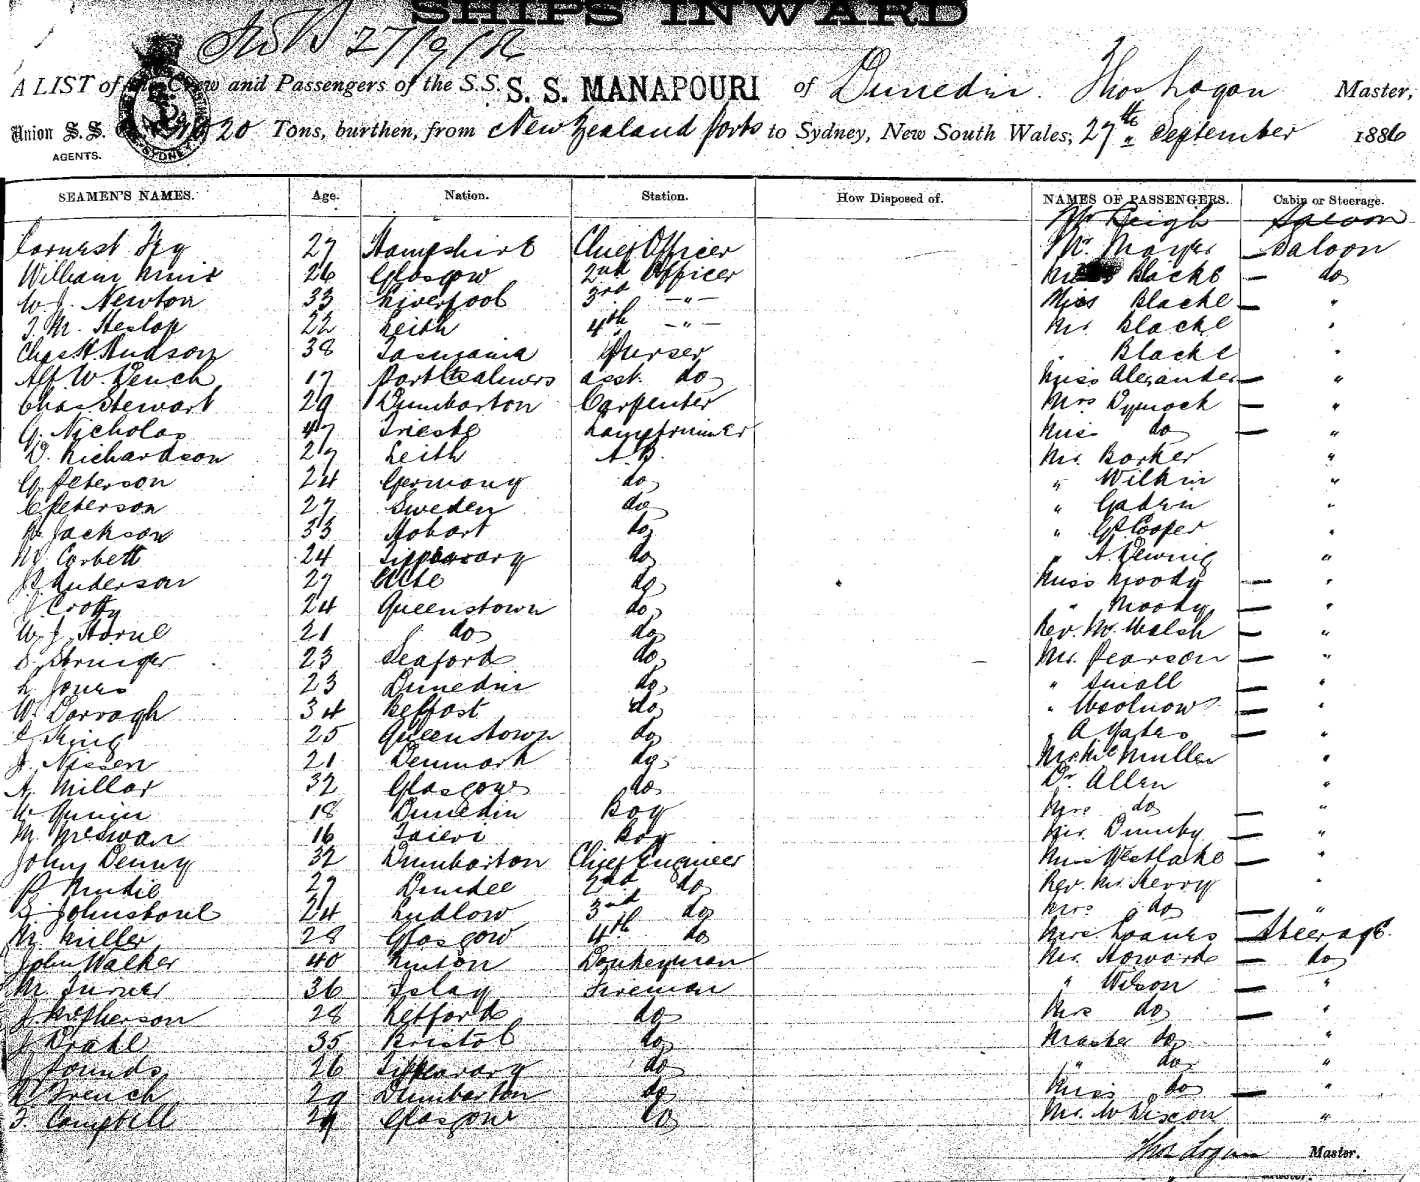 SHIPS INWARD
27/9/86
A LIST of the Crew and Passengers of the S.S. S. S. MANAPOURI of Dunedin. Thos Logan Master,
Union S.S. Co. 1020 Tons, burthen, from New Zealand ports to Sydney, New South Wales, 27th September 1886
AGENTS.
SEAMEN'S NAMES. Age. Nation. Station. How Disposed of. NAMES OF PASSENGERS. Cabin or Steerage.
Mr Leigh Saloon
27 Hampshire Chief Officer Mr. Mayer Saloon
William Muir 26 Glasgow 2nd Officer Blacke do
W. J. Newton 33 Liverpool 3rd -"- Miss Blacke "
T. M. Heslop 22 Leith 4th -"- Mr. Blacke "
Chas H Hudson 38 Tasmania Purser " Blacke "
Alf W. Dench 17 Port Chalmers asst. do Miss Alexander "
Chas. Stewart 29 Dumbarton Carpenter Mrs Dymock "
G. Nicholas 47 Trieste Lamptrimmer Miss do "
D. Richardson 27 Leith A.B. Mr. Barker "
G. Peterson 24 Germany do " Wilkin "
C Peterson 27 Sweden do "
Jackson 33 Hobart do " Cooper "
M. Corbett 24 Tipperary do " A "
Anderson 27 do Miss Moody "
J. Crotty 24 Queenstown do " Moody "
W. J. Horne 21 do do Rev. Mr. Walsh "
S. Stringer 23 Seaford do Mr. Pearson "
L. Jones 23 Dunedin do " Small "
W. Darragh 34 Belfast do " Woolnow "
King 25 Queenstown do " A Yates "
J. Nissen 21 Denmark do Mr. McMullen "
A. Millar 32 Glasgow do Dr. Allen "
W Quinn 18 Dunedin Boy Mrs do "
M. McSwan 16 Taieri Boy Mr. "
John Denny 32 Dumbarton Chief Engineer Miss Westlake "
P. Mudie 27 Dundee 2nd do Rev. Mr. Kerry "
E. Johnstone 24 Ludlow 3rd do Mrs do "
M. Miller 28 Glasgow 4th do Mrs Steerage
John Walker 40 Donkeyman Mr. Howard do
M. Turner 36 Islay Fireman " Wilson "
J. McPherson 28 do Mrs do "
J Drake 35 Bristol do Master do "
J Pounds 26 Tipperary do " do "
French 29 Dumbarton do Miss do "
T. Campbell 29 Glasgow do Mr. W Dixson "
Thos Logan Master.